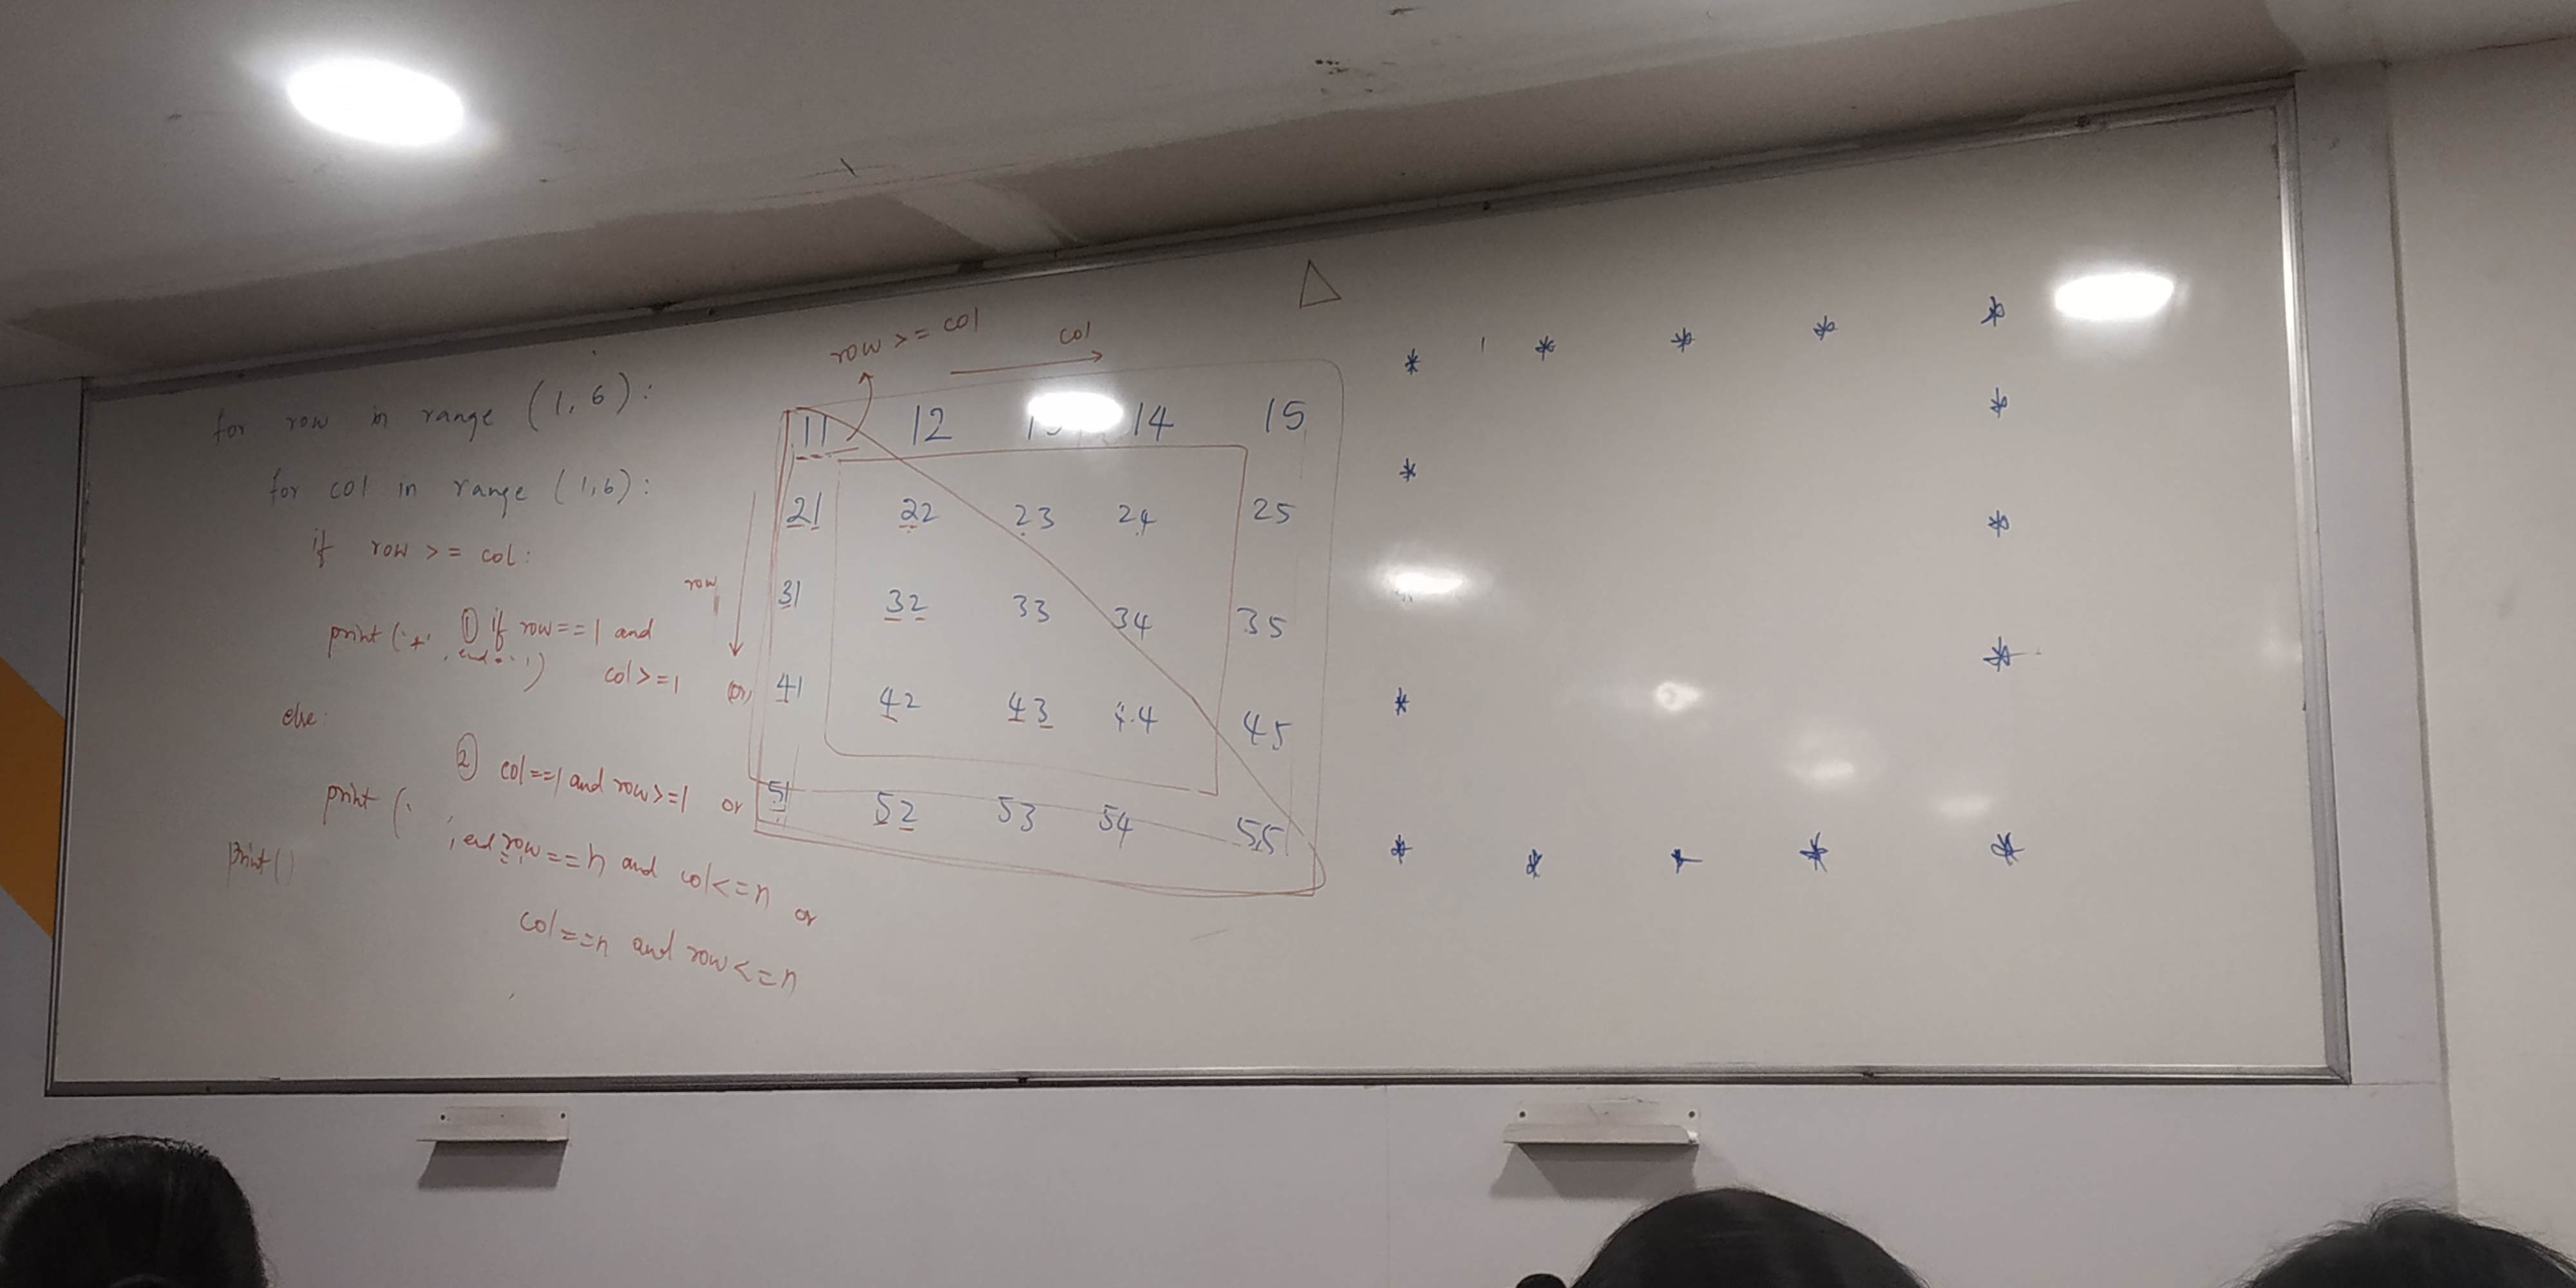 for row in range (1, 6):
for col in range (1,6):
if row >= col:
print ('*'
, end = ' ')
① if row==1 and
col>=1 (or)
else:
② col==1 and row>=1 or
print ('
', end
row==n and col<=n or
col==n and row<=n
print()
row >= col
col
row
11 12 14 15
21 22 23 24 25
31 32 33 34 35
41 42 43 44 45
51 52 53 54 55
* * * * *
* *
*
* *
* * * * *